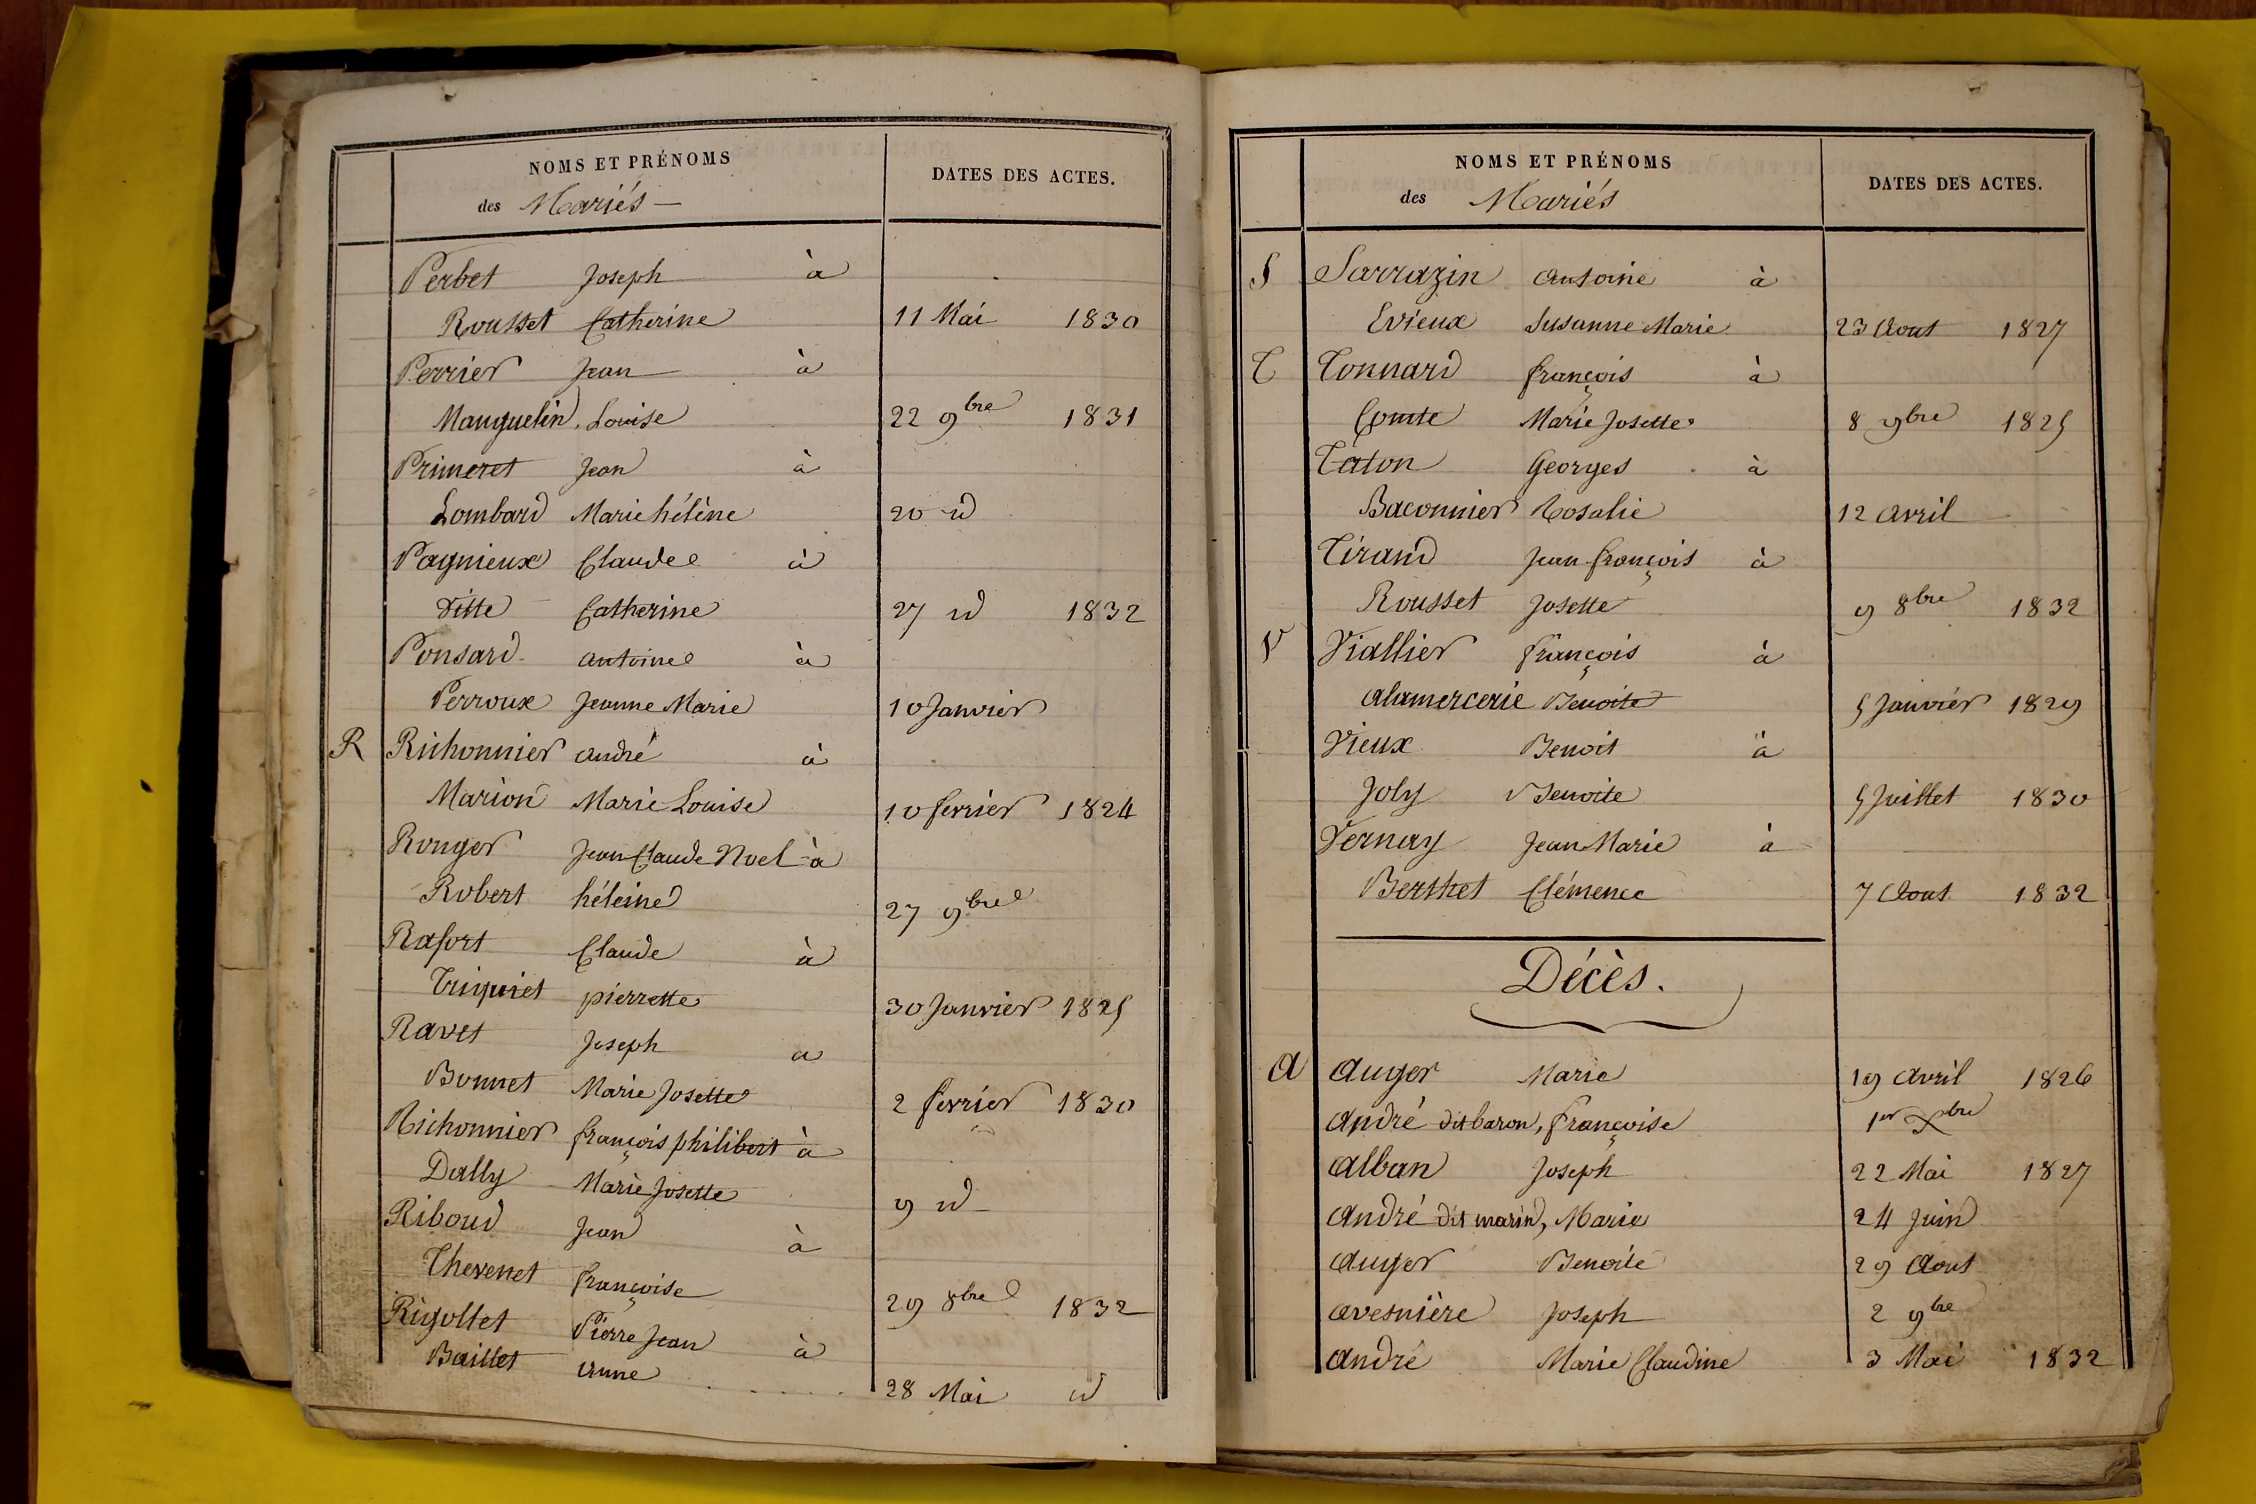 NOMS ET PRÉNOMS
des Mariés
DATES DES ACTES.
Perbet Joseph à
Rousset Catherine 11 Mai 1830
Perrier Jean à
Mauguelin Louise 22 9bre 1831
Primeret Jean à
Lombard Marie hélène 20 id
Pagnieux Claude à
Vitte Catherine 27 id 1832
Ponsard antoine à
Perroux Jeanne Marie 10 Janvier
R Richonnier andré à
Marion Marie Louise 10 fevrier 1824
Rouger Jean Claude Noel à
Robert héleine 27 9bre
Rafort Claude à
Trinquet pierrette 30 Janvier 1825
Ravet Joseph a
Bonnet Marie Josette 2 fevrier 1830
Richonnier françois philibert à
Dally Marie Josette 9 id
Riboud Jean à
Thevenet françoise 29 8bre 1832
Rigollet Pierre Jean à
Baillet anne 28 Mai id
NOMS ET PRÉNOMS
des Mariés
DATES DES ACTES.
S Sarrazin antoine à
Evieux Susanne Marie 23 Aout 1827
T Tonnard françois à
Comte Marie Josette 8 9bre 1825
Taton Georges à
Baconnier Rosalie 12 avril
Tirand Jean françois à
Rousset Josette 9 8bre 1832
V Viallier françois à
alamercerie Benoite 5 Janvier 1829
Vieux Benoit à
Joly Benoite 5 Juillet 1830
Vernay Jean Marie à
Berthet Clémence 7 Aout 1832
Décès.
A auger Marie 19 avril 1826
andré dit baron, françoise 1er Xbre
alban Joseph 22 Mai 1827
andré dit marin, Marie 24 juin
auger Benoite 29 Aout
avesnière Joseph 2 9bre
andré Marie Claudine 3 Mai 1832